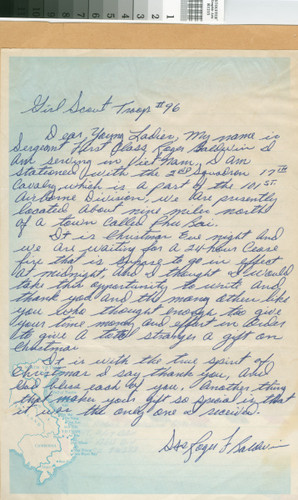 Girl Scout Troop #96
Dear, Young Ladies, My name is
Sergeant First Class Roger Baldwin I
am serving in Viet Nam, I am
stationed with the 2nd Squadron 17th
Cavalry which is a part of the 101st
Airborne Division, we are presently
located about nine miles north
of a town called Phu Bai.
It is Christmas Eve night and
we are waiting for a 24 hour Cease
fire that is suppose to go in effect
at midnight, and I thought I would
take this oppertunity to write and
thank you and the many others like
you who thought enough to give
your time money and effort in order
to give a total stranger a gift on
Christmas.
It is with the true spirit of
Christmas I say thank you, and
God bless each of you. Another thing
that makes your gift so special is that
it was the only one I received.
Sfc Roger F Baldwin